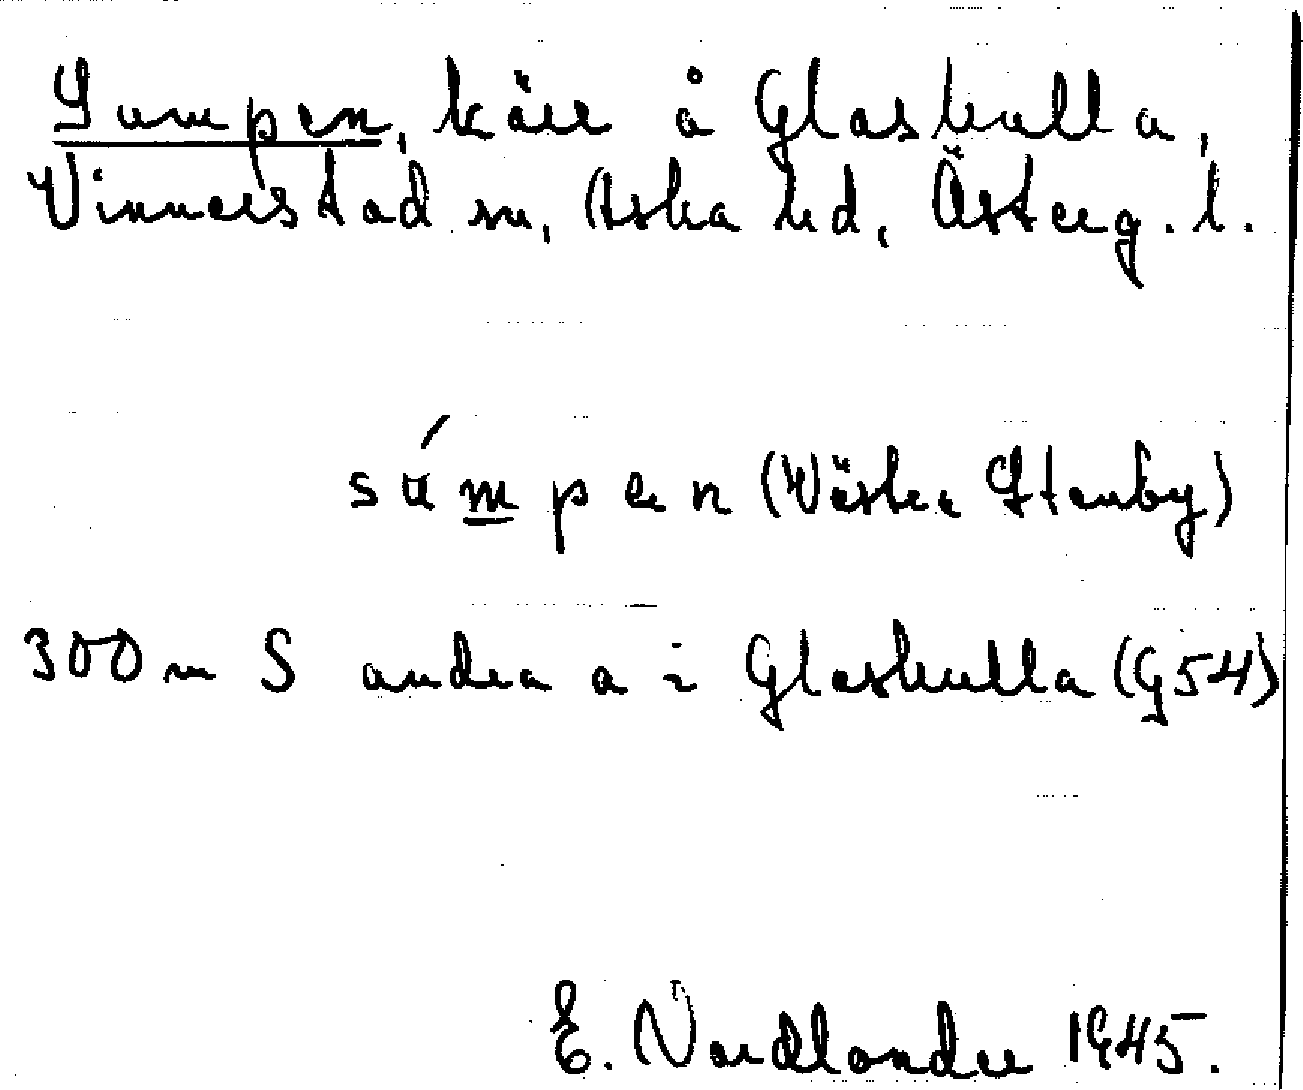 Sumpen, kärr å Glaskulla,
Vinnerstad sn, Aska hd, Österg. l.
súmpen (Västra Stenby)
300 m S andra a i Glaskulla (G54)
E. Nordlander 1945.